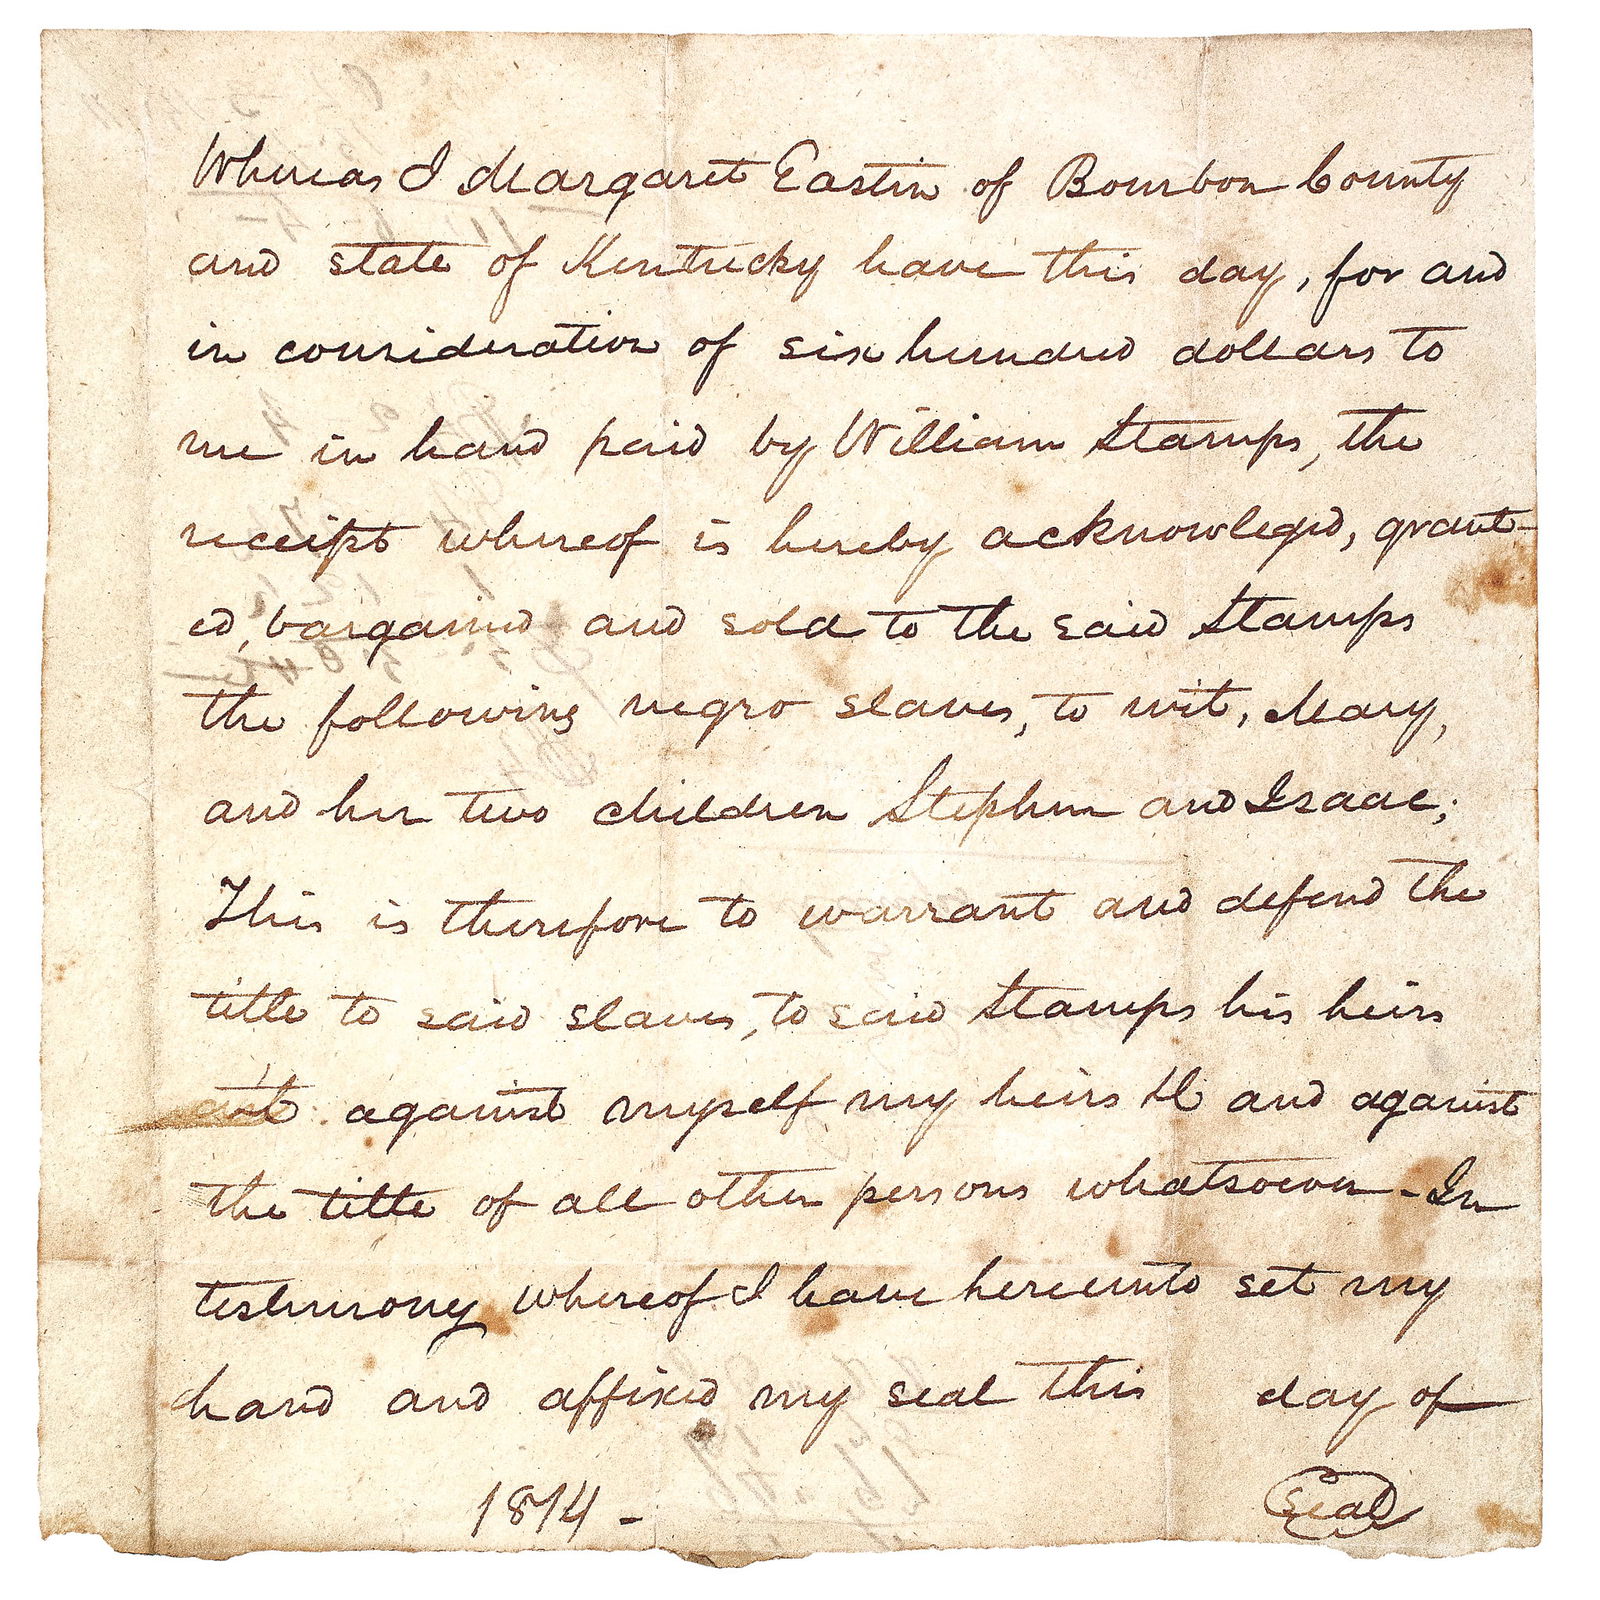 Whereas I Margaret Eastin of Bourbon County
and state of Kentucky have this day, for and
in consideration of six hundred dollars to
me in hand paid by William Stamps, the
receipt whereof is hereby acknowleged, grant-
ed, bargained and sold to the said Stamps
the following negro slaves, to wit, Mary,
and her two children Stephen and Isaac;
This is therefore to warrant and defend the
title to said slaves, to said Stamps his heirs
against myself my heirs &c and against
the title of all other persons whatsoever - In
testimony whereof I have hereunto set my
hand and affixed my seal this day of
1814 - Seal